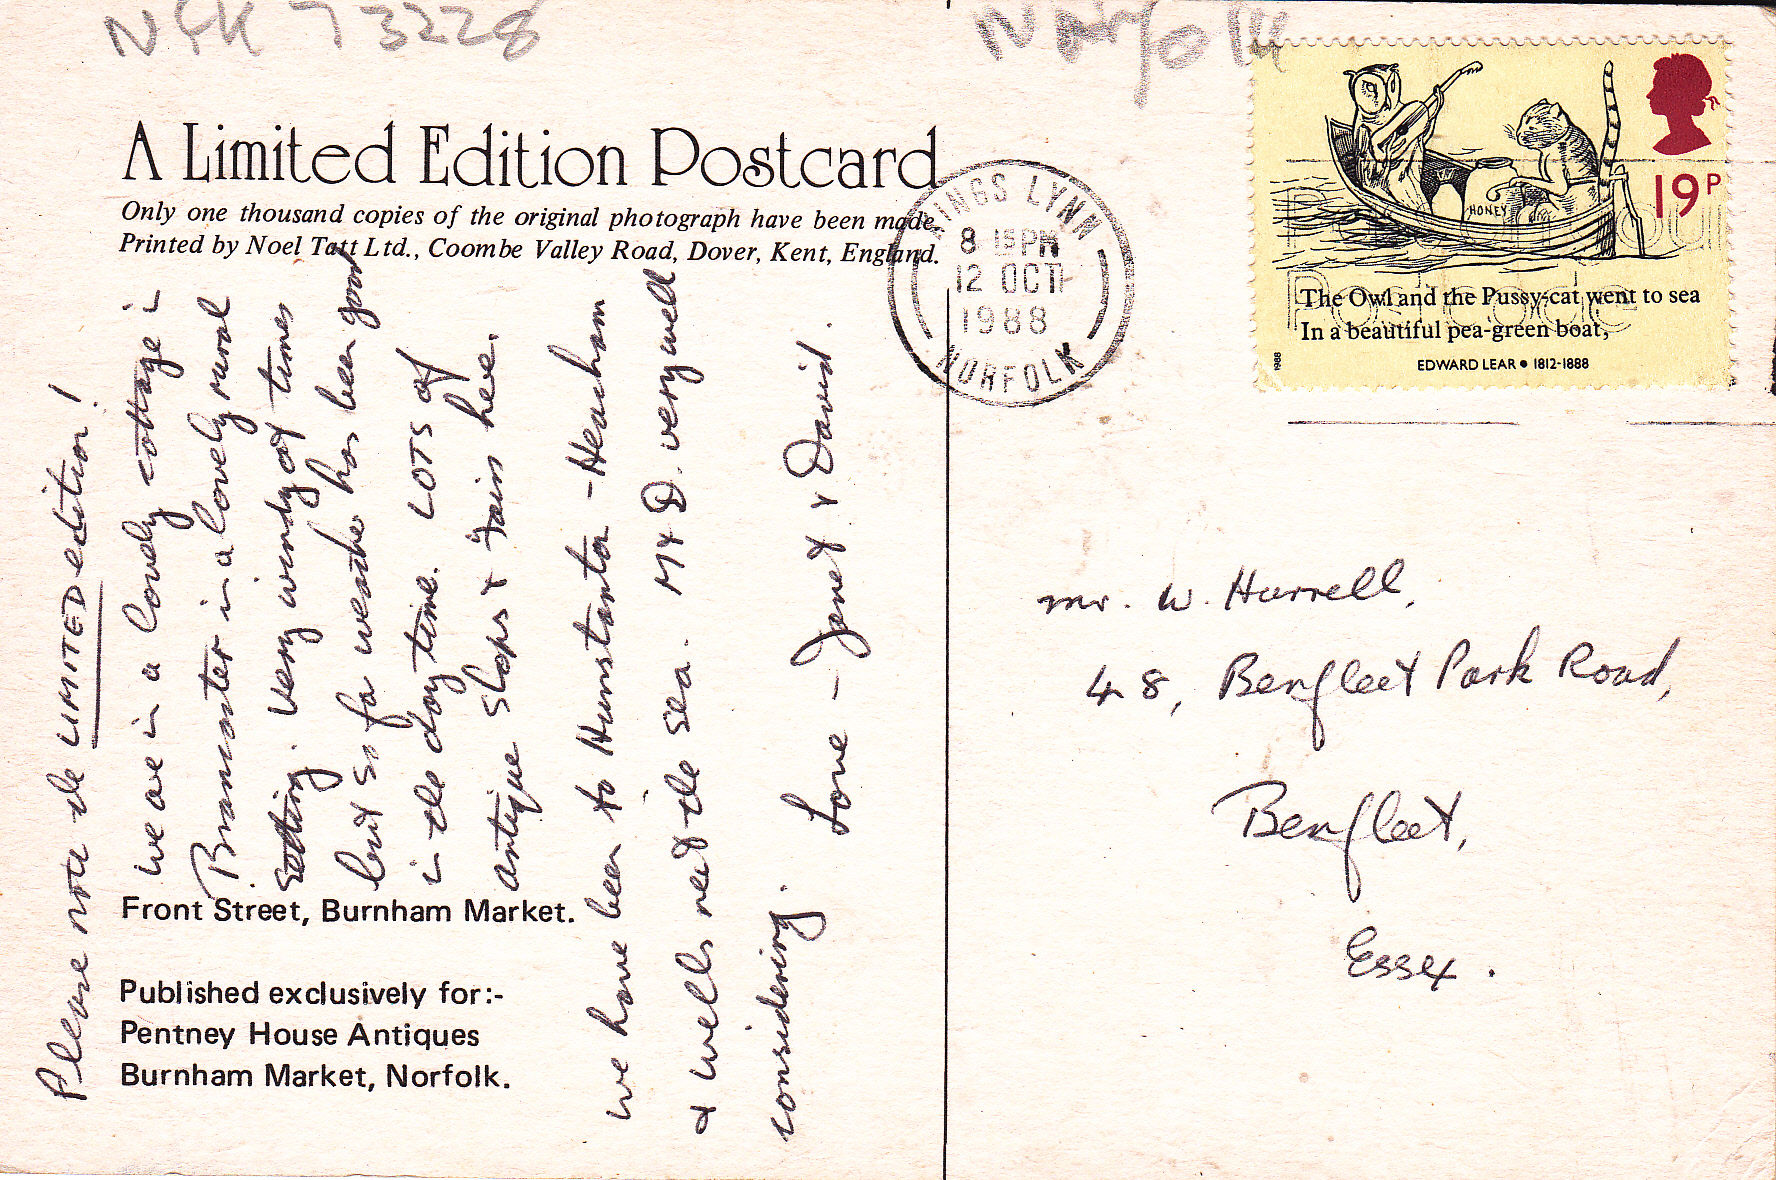 NFK 73228
Norfolk
A Limited Edition Postcard
Only one thousand copies of the original photograph have been made.
Printed by Noel Tatt Ltd., Coombe Valley Road, Dover, Kent, England.
Please note the LIMITED edition!
We are in a lovely cottage in
Brancaster in a lovely rural
setting. Very windy at times
but so far weather has been good
in the daytime. LOTS of
antique shops & fairs here.
We have been to Hunstanton - Heacham
& Wells next the sea. M & D. very well
considering.
Love - Janet & David.
Front Street, Burnham Market.
Published exclusively for:-
Pentney House Antiques
Burnham Market, Norfolk.
KINGS LYNN
8 15 PM
12 OCT
1988
NORFOLK
HONEY
19P
The Owl and the Pussy-cat went to sea
In a beautiful pea-green boat,
EDWARD LEAR • 1812-1888
1988
Mr. W. Hurrell,
48, Benfleet Park Road,
Benfleet,
Essex.